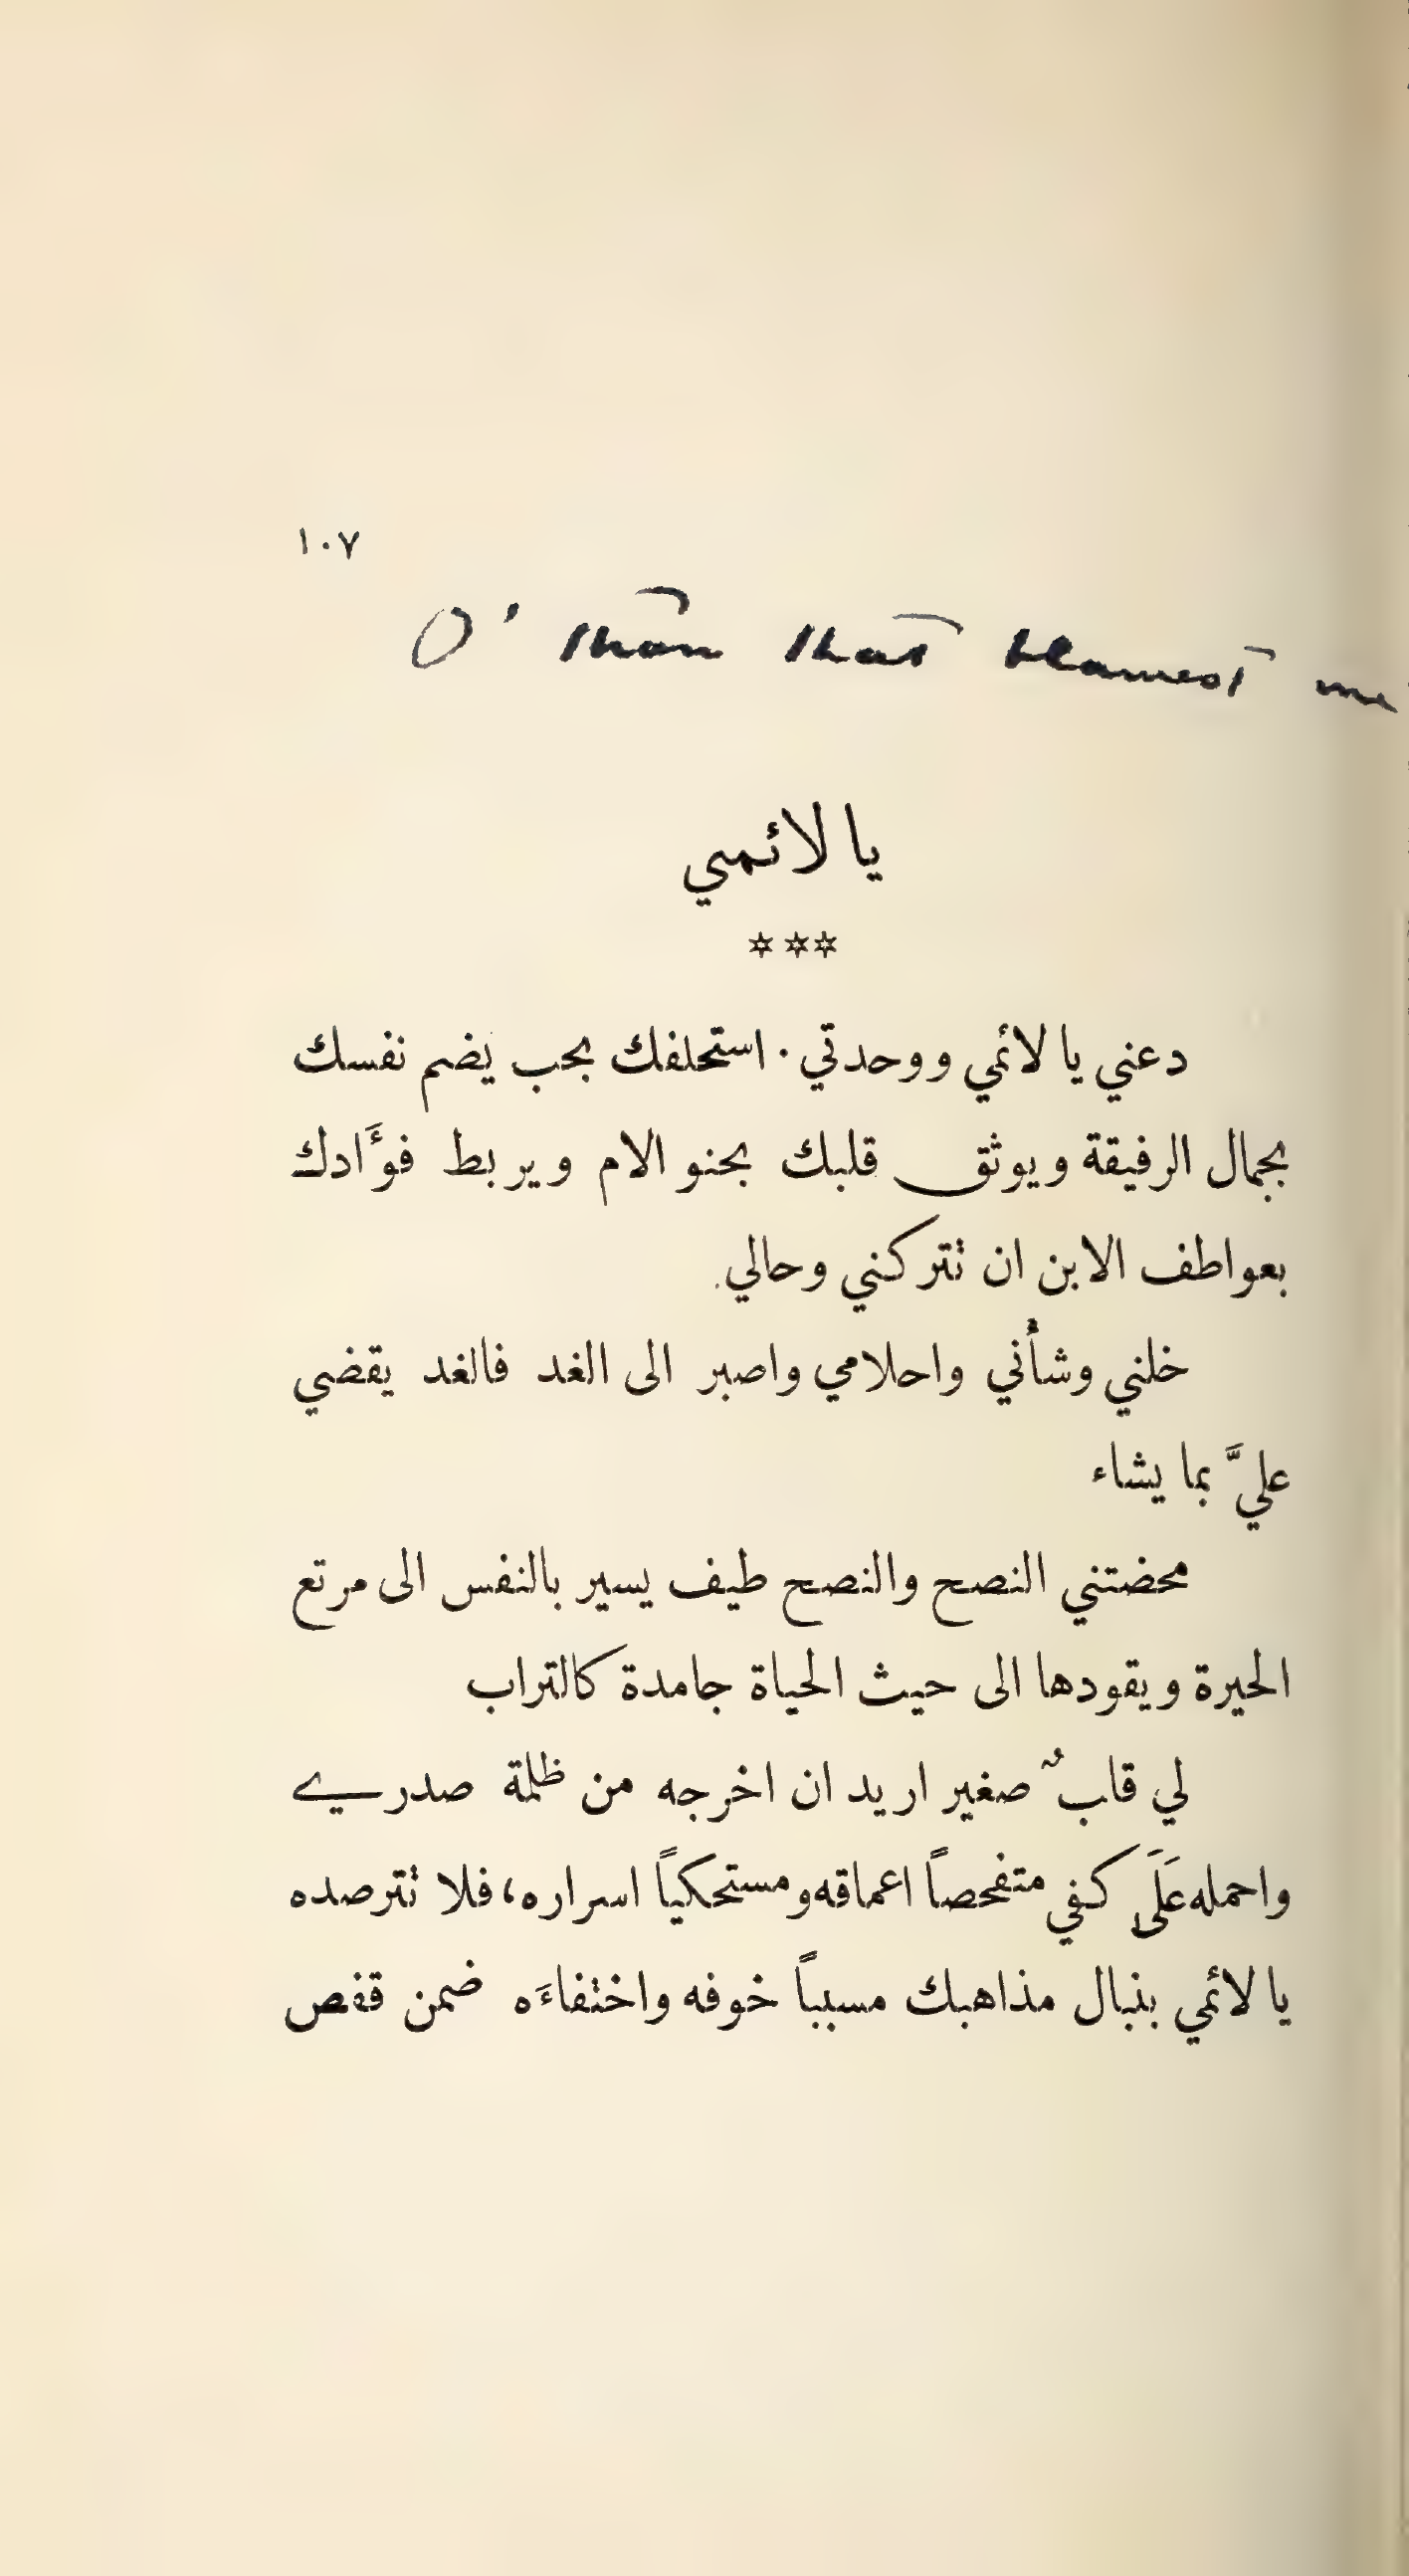 ١٠٧
O' thou that blamest me
يا لائمي
***
دعني يا لائمي ووحدتي. استحلفك بحب يضم نفسك
بجمال الرفيقة ويوثق قلبك بحنو الام ويربط فوَّادك
بعواطف الابن ان تتركني وحالي.
خلني وشأني واحلامي واصبر الى الغد فالغد يقضي
عليَّ بما يشاء
محضتني النصح والنصح طيف يسير بالنفس الى مرتع
الحيرة ويقودها الى حيث الحياة جامدة كالتراب
لي قلبٌ صغير اريد ان اخرجه من ظلمة صدري
واحمله عَلَى كفي متفحصاً اعماقه ومستحكياً اسراره، فلا تترصده
يا لائمي بنبال مذاهبك مسبباً خوفه واختفاءَه ضمن قفص